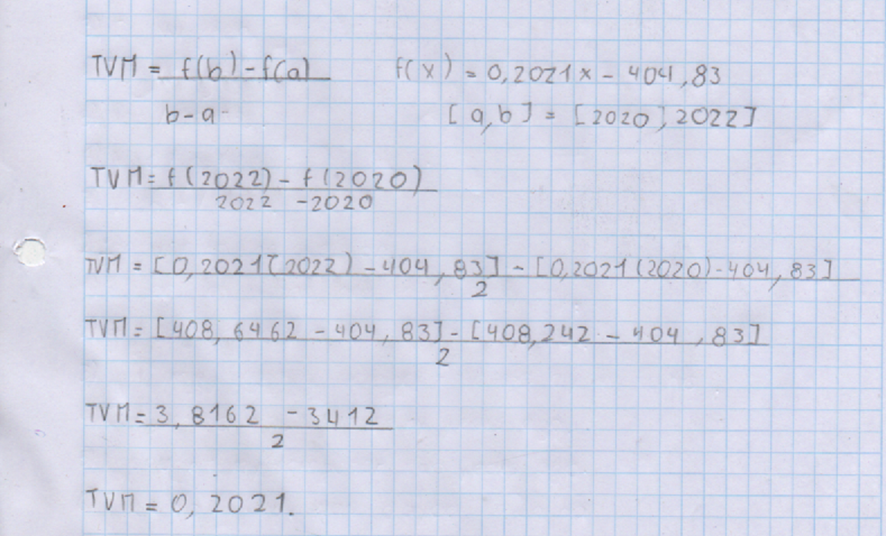 TVM = f(b) - f(a) f(x) = 0,2021x - 404,83
b - a [a,b] = [2020,2022]
TVM = f(2022) - f(2020)
2022 - 2020
TVM = [0,2021(2022) - 404,83] - [0,2021(2020) - 404,83]
2
TVM = [408,6462 - 404,83] - [408,242 - 404,83]
2
TVM = 3,8162 - 3412
2
TVM = 0,2021.